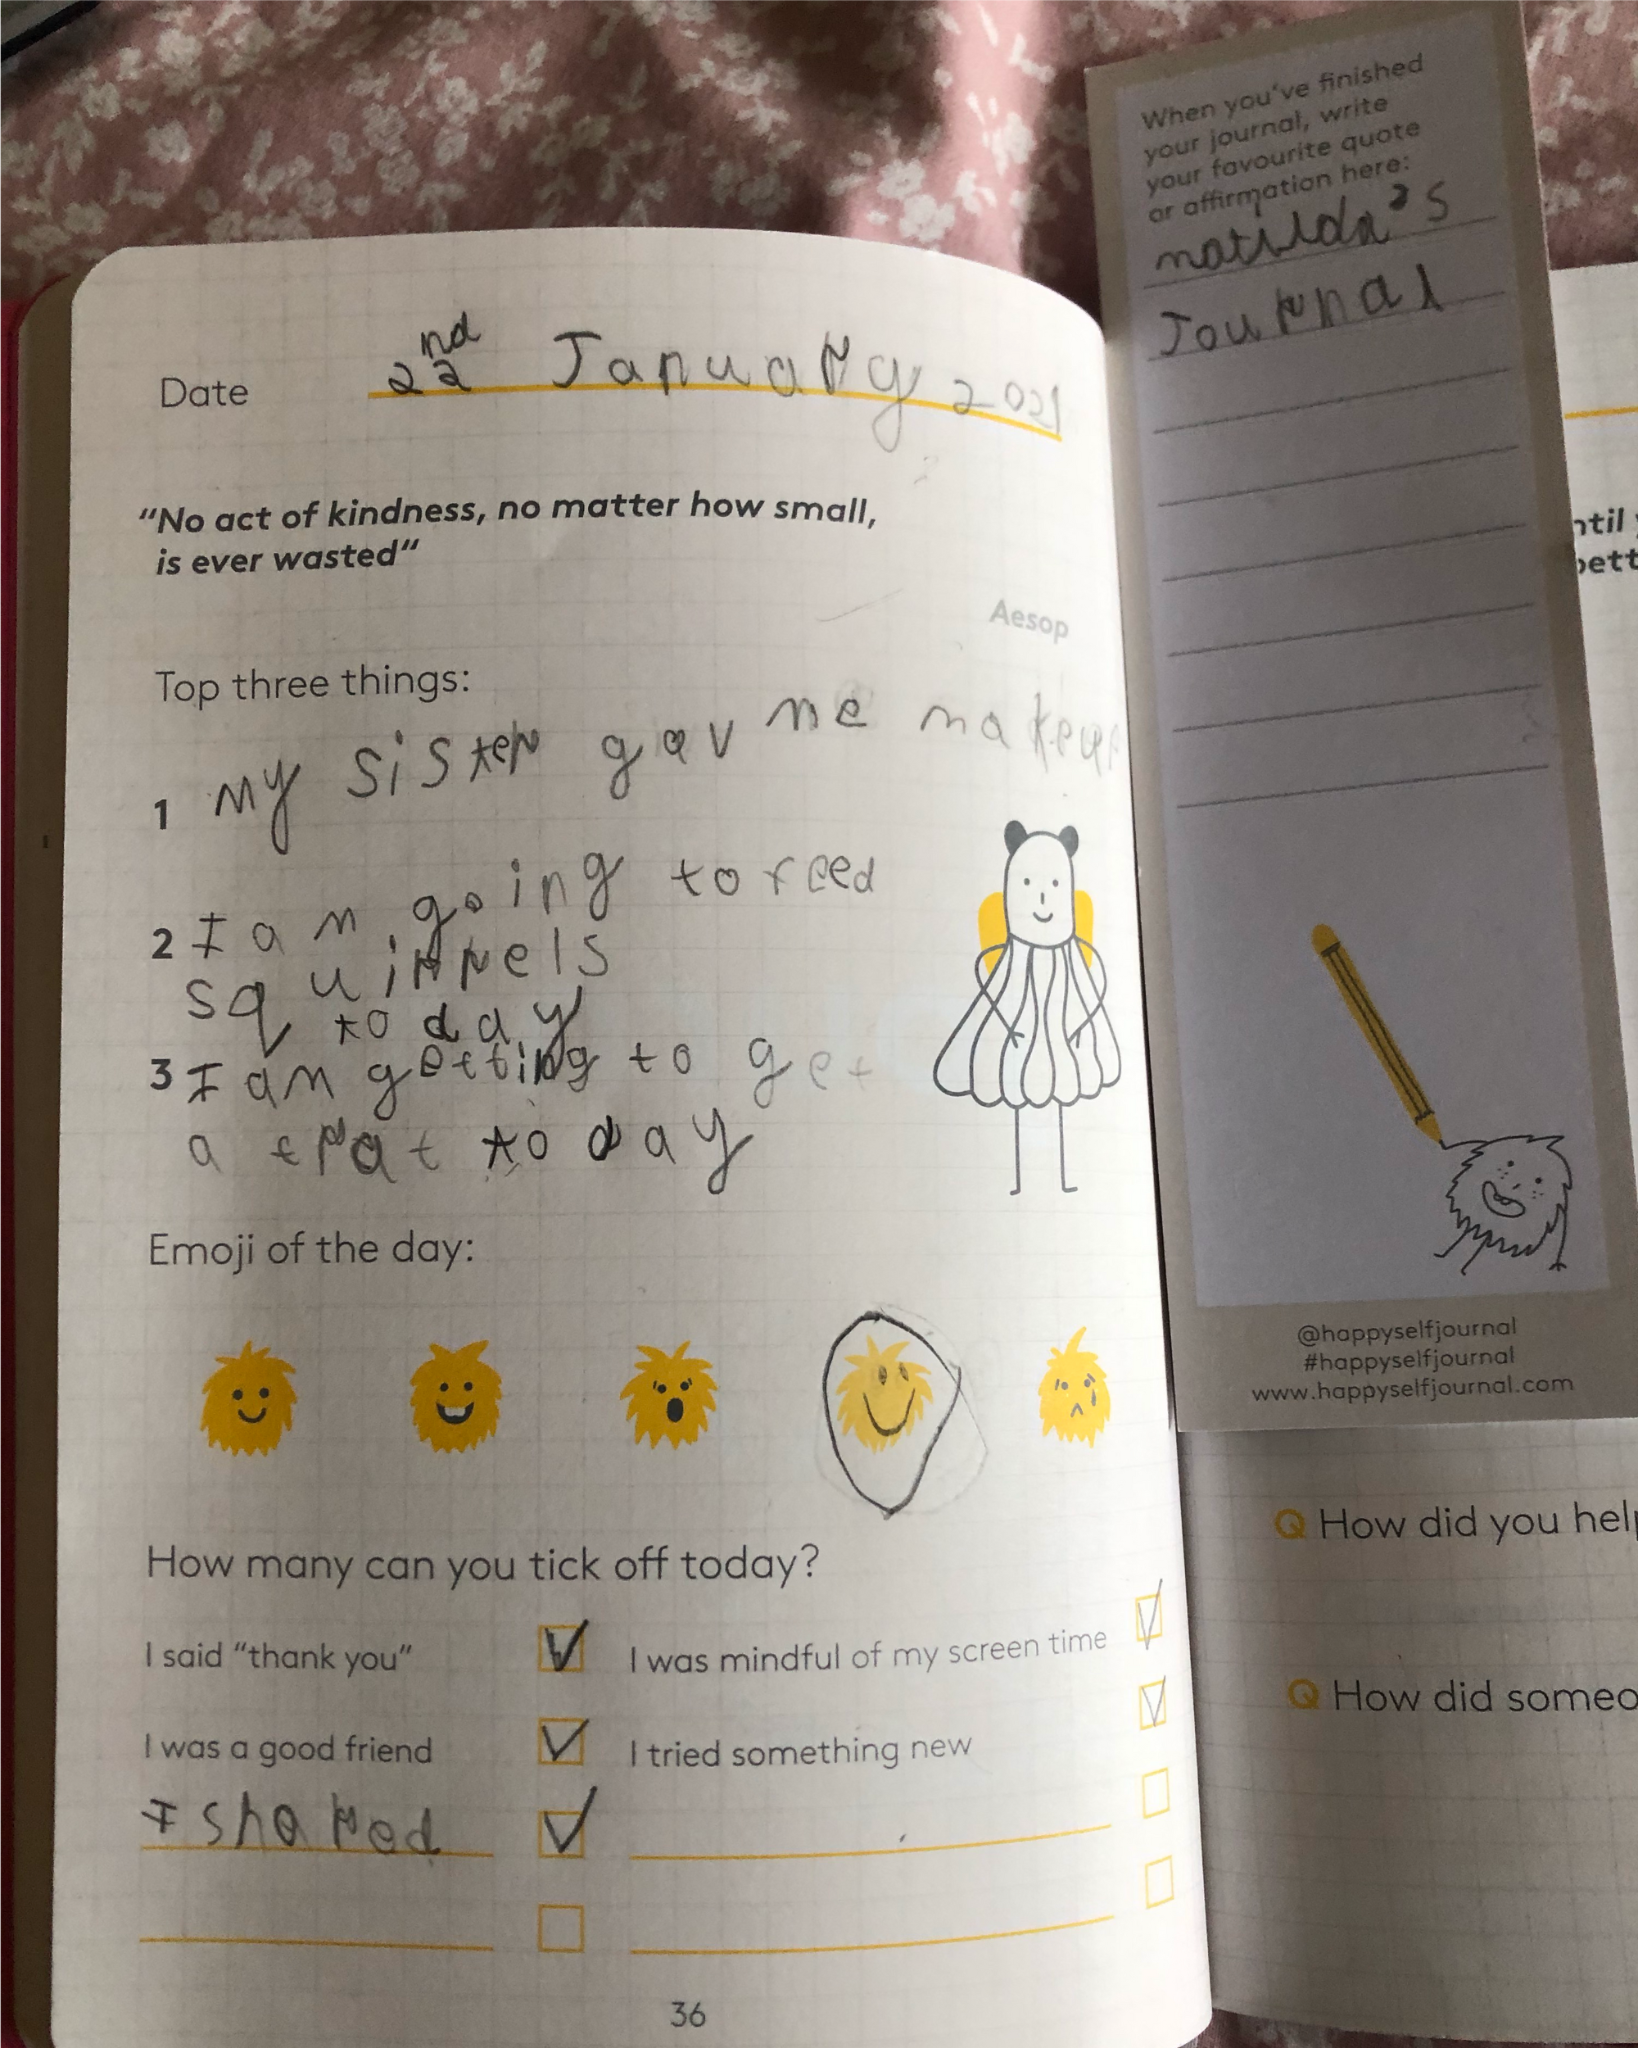 Date 22nd January 2021
"No act of kindness, no matter how small,
is ever wasted"
Aesop
Top three things:
1 my sister gav me makeup
2 I am going to feed
squirrels
to day
3 I am getting to get
a trat to day
Emoji of the day:
How many can you tick off today?
I said "thank you"
I was mindful of my screen time
I was a good friend
I tried something new
I shared
36
When you've finished
your journal, write
your favourite quote
or affirmation here:
matilda's
Journal
@happyselfjournal
#happyselfjournal
www.happyselfjournal.com
Q How did you help
Q How did someo